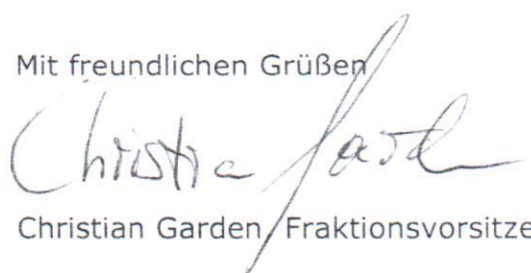 Mit freundlichen Grüßen
Christia Garden
Christian Garden, Fraktionsvorsitze